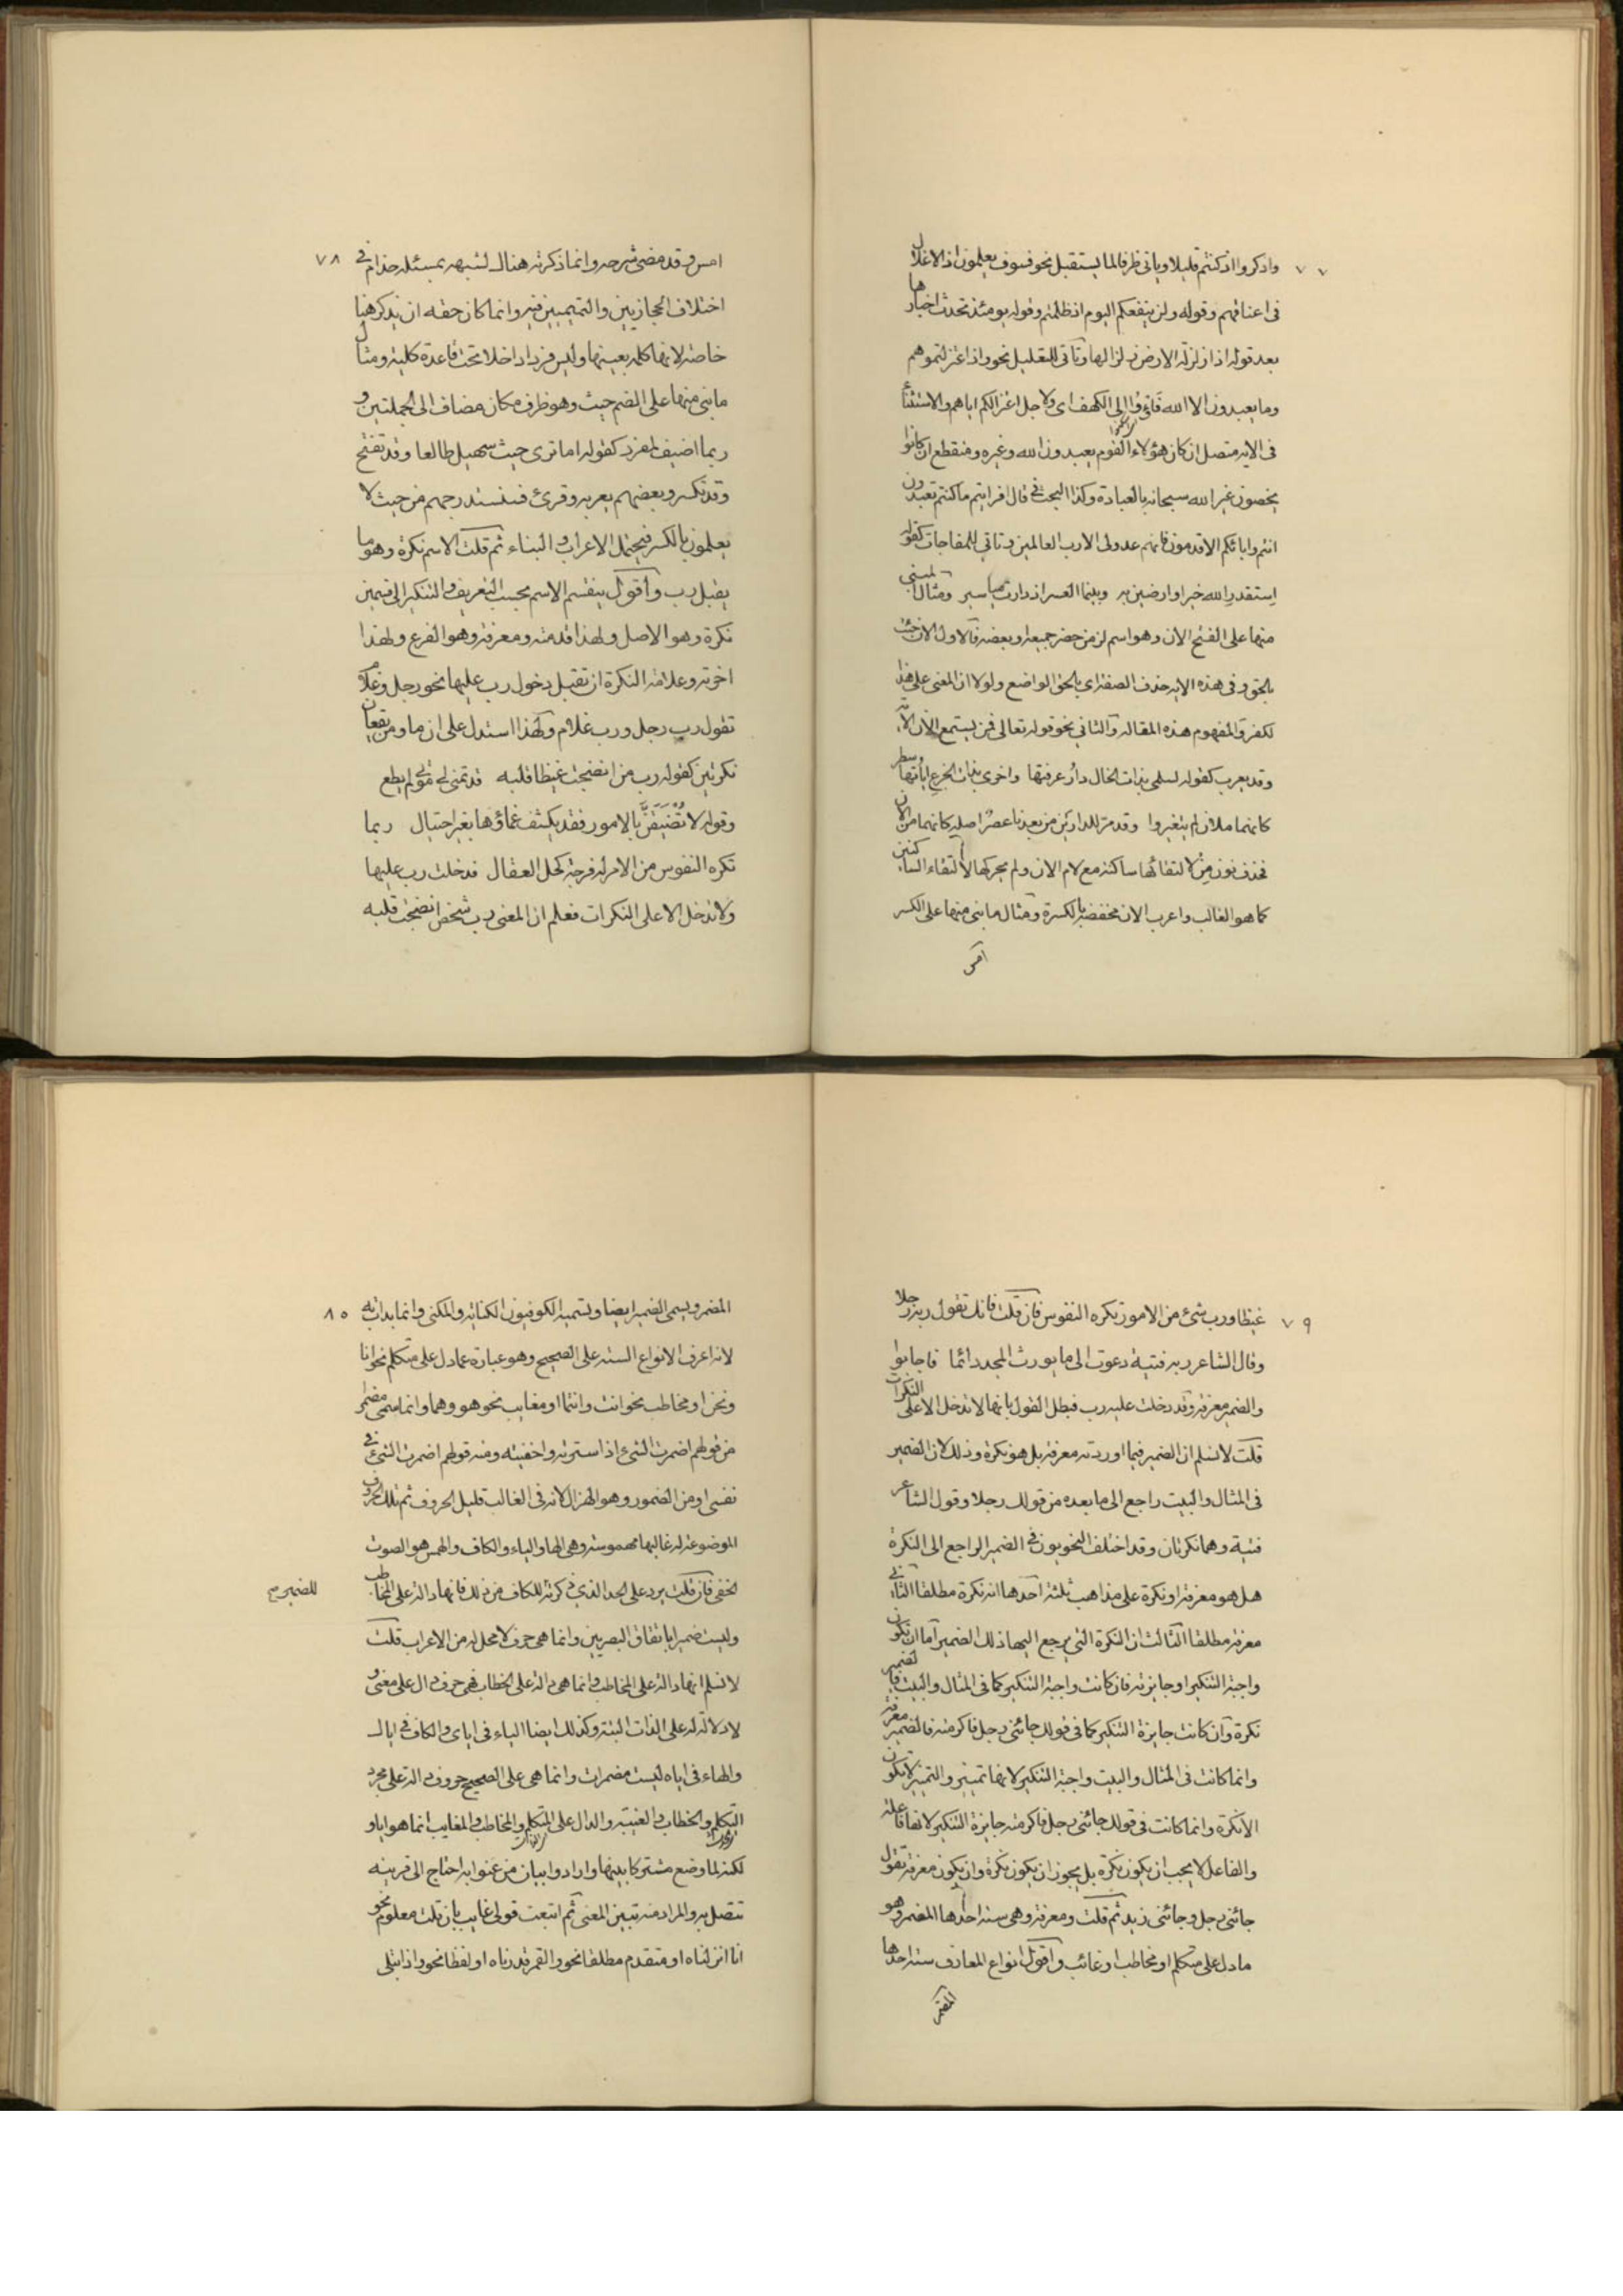 ٧٧
واذكروا اذ كنتم قليلا وياتى ظرفا لما يستقبل نحو فسوف يعلمون اذ الاغلال
فى اعناقهم وقوله ولن ينفعكم اليوم اذ ظلمتم وقوله يومئذ تحدث اخبارها
بعد قوله اذا زلزلة الارض زلزالها وتأتى للتعليل نحو واذ اعتزلتموهم
وما يعبدون الا الله فأووا الى الكهف اى ولاجل اعتزالكم اياهم والاستثناء
فى الاية متصل ان كان هؤلاء القوم يعبدون الله وغيره ومنقطع ان كانوا
يخصون غير الله سبحانه بالعبادة وكذا البحث فى قال افرايتم ما كنتم تعبدون
انتم وابائكم الاقدمون فانهم عدو لى الا رب العالمين وتاتى للمفاجات كقوله
استقدر الله خيرا وارضين به وبينما العسر اذ دارت مياسير ومثال المبنى
منها على الفتح الان وهو اسم لزمن حضر جميعه او بعضه فالاول الان جئت
بالحق وفى هذه الاية حذف الصفة اى بالحق الواضح ولولا ان المعنى على هذا
لكفروا لمفهوم هذه المقالة والثانى نحو قوله تعالى فمن يستمع الان الآية
وقد يعرب كقوله لسلمى بذات الخال دار عرفتها واخرى بذات الجزع اياتها سطر
كانهما ملان لم يتغيروا وقد مر للدارين من بعدنا عصر اصله كانهما من الان
فحذف نون من لالتقائها ساكنة مع لام الان ولم يحركها لالتقاء الساكنين
كما هو الغالب واعرب الان فخفضه بالكسرة ومثال ما بنى منها على الكسر
امس
٧٨
امس وقد مضى شرحه وانما ذكرته هناك لشبهه بمسئلة حذام فى
اختلاف الحجازيين والتميميين فيه وانما كان حقه ان يذكر هنا
خاصة لانها كلمة بعينها وليس فردا داخلا تحت قاعدة كلية ومثال
ما بنى منها على الضم حيث وهو ظرف مكان مضاف الى الجملتين و
ربما اضيف لمفرد كقوله اما ترى حيث سهيل طالعا وقد تفتح
وقد تكسر وبعضهم يعربه وقرئ فسنستدرجهم من حيث لا
يعلمون بالكسر فيحتمل الاعراب والبناء ثم قلت الاسم نكرة وهو ما
يقبل رب واقول ينقسم الاسم بحسب التعريف والتنكير الى قسمين
نكرة وهو الاصل ولهذا قدمته ومعرفة وهو الفرع ولهذا
اخرته وعلامة النكرة ان تقبل دخول رب عليها نحو رجل وغلام
تقول رب رجل ورب غلام وبهذا استدل على ان ما ومن يقعان
نكرتين كقوله رب من انضجت غيظا قلبه قد تمنى لى موتا لم يطع
وقوله لا تُضَيِّقَنَّ بالامور فقد يكشف غماؤها بغير احتيال ربما
تكره النفوس من الامر له فرجة كحل العقال فدخلت رب عليها
ولا تدخل الا على النكرات فعلم ان المعنى رب شخص انضجت قلبه
٧٩
غيظا ورب شئ من الامور تكره النفوس فان قلت فانك تقول ربه رجلا
وقال الشاعر ربه فتية دعوت الى ما يورث المجد دائما فاجابوا
والضمير معرفة وقد دخلت عليه رب فبطل القول بانها لا تدخل الا على النكرات
قلت لا نسلم ان الضمير فيما اوردته معرفة بل هو نكرة وذلك لان الضمير
فى المثال والبيت راجع الى ما بعده من قولك رجلا وقول الشاعر
فتية وهما نكرتان وقد اختلف النحويون فى الضمير الراجع الى النكرة
هل هو معرفة او نكرة على مذاهب ثلثة احدها انه نكرة مطلقا الثانى
معرفة مطلقا الثالث ان النكرة التى يرجع اليها ذلك الضمير اما ان تكون
واجبة التنكير او جايزته فان كانت واجبة التنكير كما فى المثال والبيت فالضمير
نكرة وان كانت جايزة التنكير كما فى قولك جائنى رجل فاكرمته فالضمير معرفة
وانما كانت فى المثال والبيت واجبة التنكير لانها تمييز والتمييز لا يكون
الا نكرة وانما كانت فى قولك جائنى رجل فاكرمته جايزة التنكير لانها فاعلة
والفاعل لا يجب ان يكون نكرة بل يجوز ان يكون نكرة وان يكون معرفة تقول
جائنى رجل وجائنى زيد ثم قلت ومعرفة وهى ستة احدها المضمر وهو
ما دل على متكلم او مخاطب او غائب واقول انواع المعارف ستة احدها
المضمر
٨٠
المضمر ويسمى الضمير ايضا ويسميه الكوفيون الكناية والمكنى وانما بدات به
لانه اعرف الانواع الستة على الصحيح وهو عبارة عما دل على متكلم نحو انا
ونحن او مخاطب نحو انت وانتما او مغايب نحو هو وهما وانما سمى مضمر
من قولهم اضمرت الشئ اذا سترته واخفيته ومنه قولهم اضمرت الشئ فى
نفسى او من الضمور وهو الهزال لانه فى الغالب قليل الحروف ثم تلك الحروف
الموضوعة له غالبها مهموسة وهى الهاء والتاء والكاف والهمس هو الصوت
الخفى فان قلت يرد على الحد الذى ذكرته للكاف من ذلك فانها دالة على المخاطب
للضمير م
وليست ضميرا باتفاق البصريين وانما هى حرف لا محل له من الاعراب قلت
لا نسلم انها دالة على المخاطب وانما هى دالة على الخطاب فهى حرف دال على معنى و
لا دلالة له على الذات البتة وكذلك ايضا الياء فى اياى والكاف فى اياك
والهاء فى اياه ليست مضمرات وانما هى على الصحيح حروف دالة على مجرد
التكلم والخطاب والغيبة والدال على المتكلم والمخاطب والمغايب انما هو ايا و
لكنه لما وضع مشتركا بينها وارادوا بيان من عنوا به احتاج الى قرينة
تتصل به والمراد منه تبيين المعنى ثم اتبعت قولى غايب بان قلت معلوم نحو
انا انزلناه او متقدم مطلقا نحو والقمر قدرناه او لفظا نحو واذ ابتلى